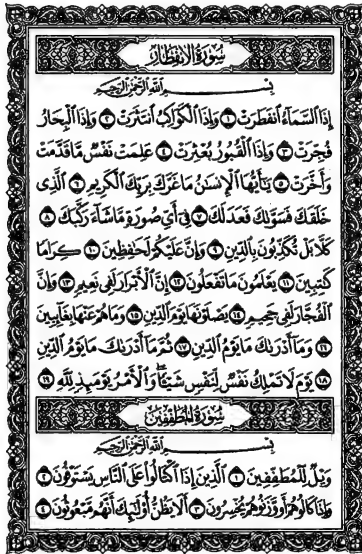 سُورَةُ الانفِطَارِ
بِسْمِ اللَّهِ الرَّحْمَٰنِ الرَّحِيمِ
إِذَا السَّمَاءُ انفَطَرَتْ ١ وَإِذَا الْكَوَاكِبُ انتَثَرَتْ ٢ وَإِذَا الْبِحَارُ
فُجِّرَتْ ٣ وَإِذَا الْقُبُورُ بُعْثِرَتْ ٤ عَلِمَتْ نَفْسٌ مَّا قَدَّمَتْ
وَأَخَّرَتْ ٥ يَٰأَيُّهَا الْإِنسَٰنُ مَا غَرَّكَ بِرَبِّكَ الْكَرِيمِ ٦ الَّذِي
خَلَقَكَ فَسَوَّىٰكَ فَعَدَلَكَ ٧ فِي أَيِّ صُورَةٍ مَّا شَاءَ رَكَّبَكَ ٨
كَلَّا بَلْ تُكَذِّبُونَ بِالدِّينِ ٩ وَإِنَّ عَلَيْكُمْ لَحَٰفِظِينَ ١٠ كِرَامًا
كَٰتِبِينَ ١١ يَعْلَمُونَ مَا تَفْعَلُونَ ١٢ إِنَّ الْأَبْرَارَ لَفِي نَعِيمٍ ١٣ وَإِنَّ
الْفُجَّارَ لَفِي جَحِيمٍ ١٤ يَصْلَوْنَهَا يَوْمَ الدِّينِ ١٥ وَمَا هُمْ عَنْهَا بِغَائِبِينَ
١٦ وَمَا أَدْرَىٰكَ مَا يَوْمُ الدِّينِ ١٧ ثُمَّ مَا أَدْرَىٰكَ مَا يَوْمُ الدِّينِ
١٨ يَوْمَ لَا تَمْلِكُ نَفْسٌ لِّنَفْسٍ شَيْئًا وَالْأَمْرُ يَوْمَئِذٍ لِّلَّهِ ١٩
سُورَةُ المُطَفِّفِينَ
بِسْمِ اللَّهِ الرَّحْمَٰنِ الرَّحِيمِ
وَيْلٌ لِّلْمُطَفِّفِينَ ١ الَّذِينَ إِذَا اكْتَالُوا عَلَى النَّاسِ يَسْتَوْفُونَ ٢
وَإِذَا كَالُوهُمْ أَو وَّزَنُوهُمْ يُخْسِرُونَ ٣ أَلَا يَظُنُّ أُولَٰئِكَ أَنَّهُم مَّبْعُوثُونَ ٤